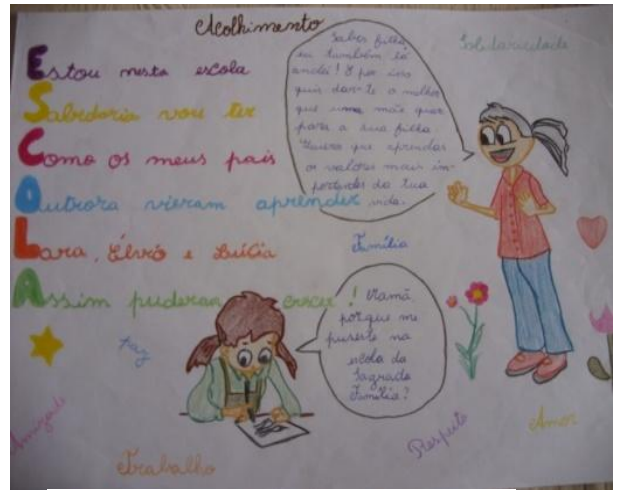 Acolhimento
Solidariedade
Estou nesta escola
Sabedoria vou ter
Como os meus pais
Outrora vieram aprender
Lara, Élvio e Lúcia
Assim puderam crescer!
Sabes filha,
eu também lá
andei! E por isso
quis dar-te o melhor
que uma mãe quer
para a sua filha.
Quero que aprendas
os valores mais im-
portantes da tua
vida.
Família
Mamã
porque me
puseste na
escola da
Sagrada
Família?
Paz
Amizade
Trabalho
Respeito
Amor